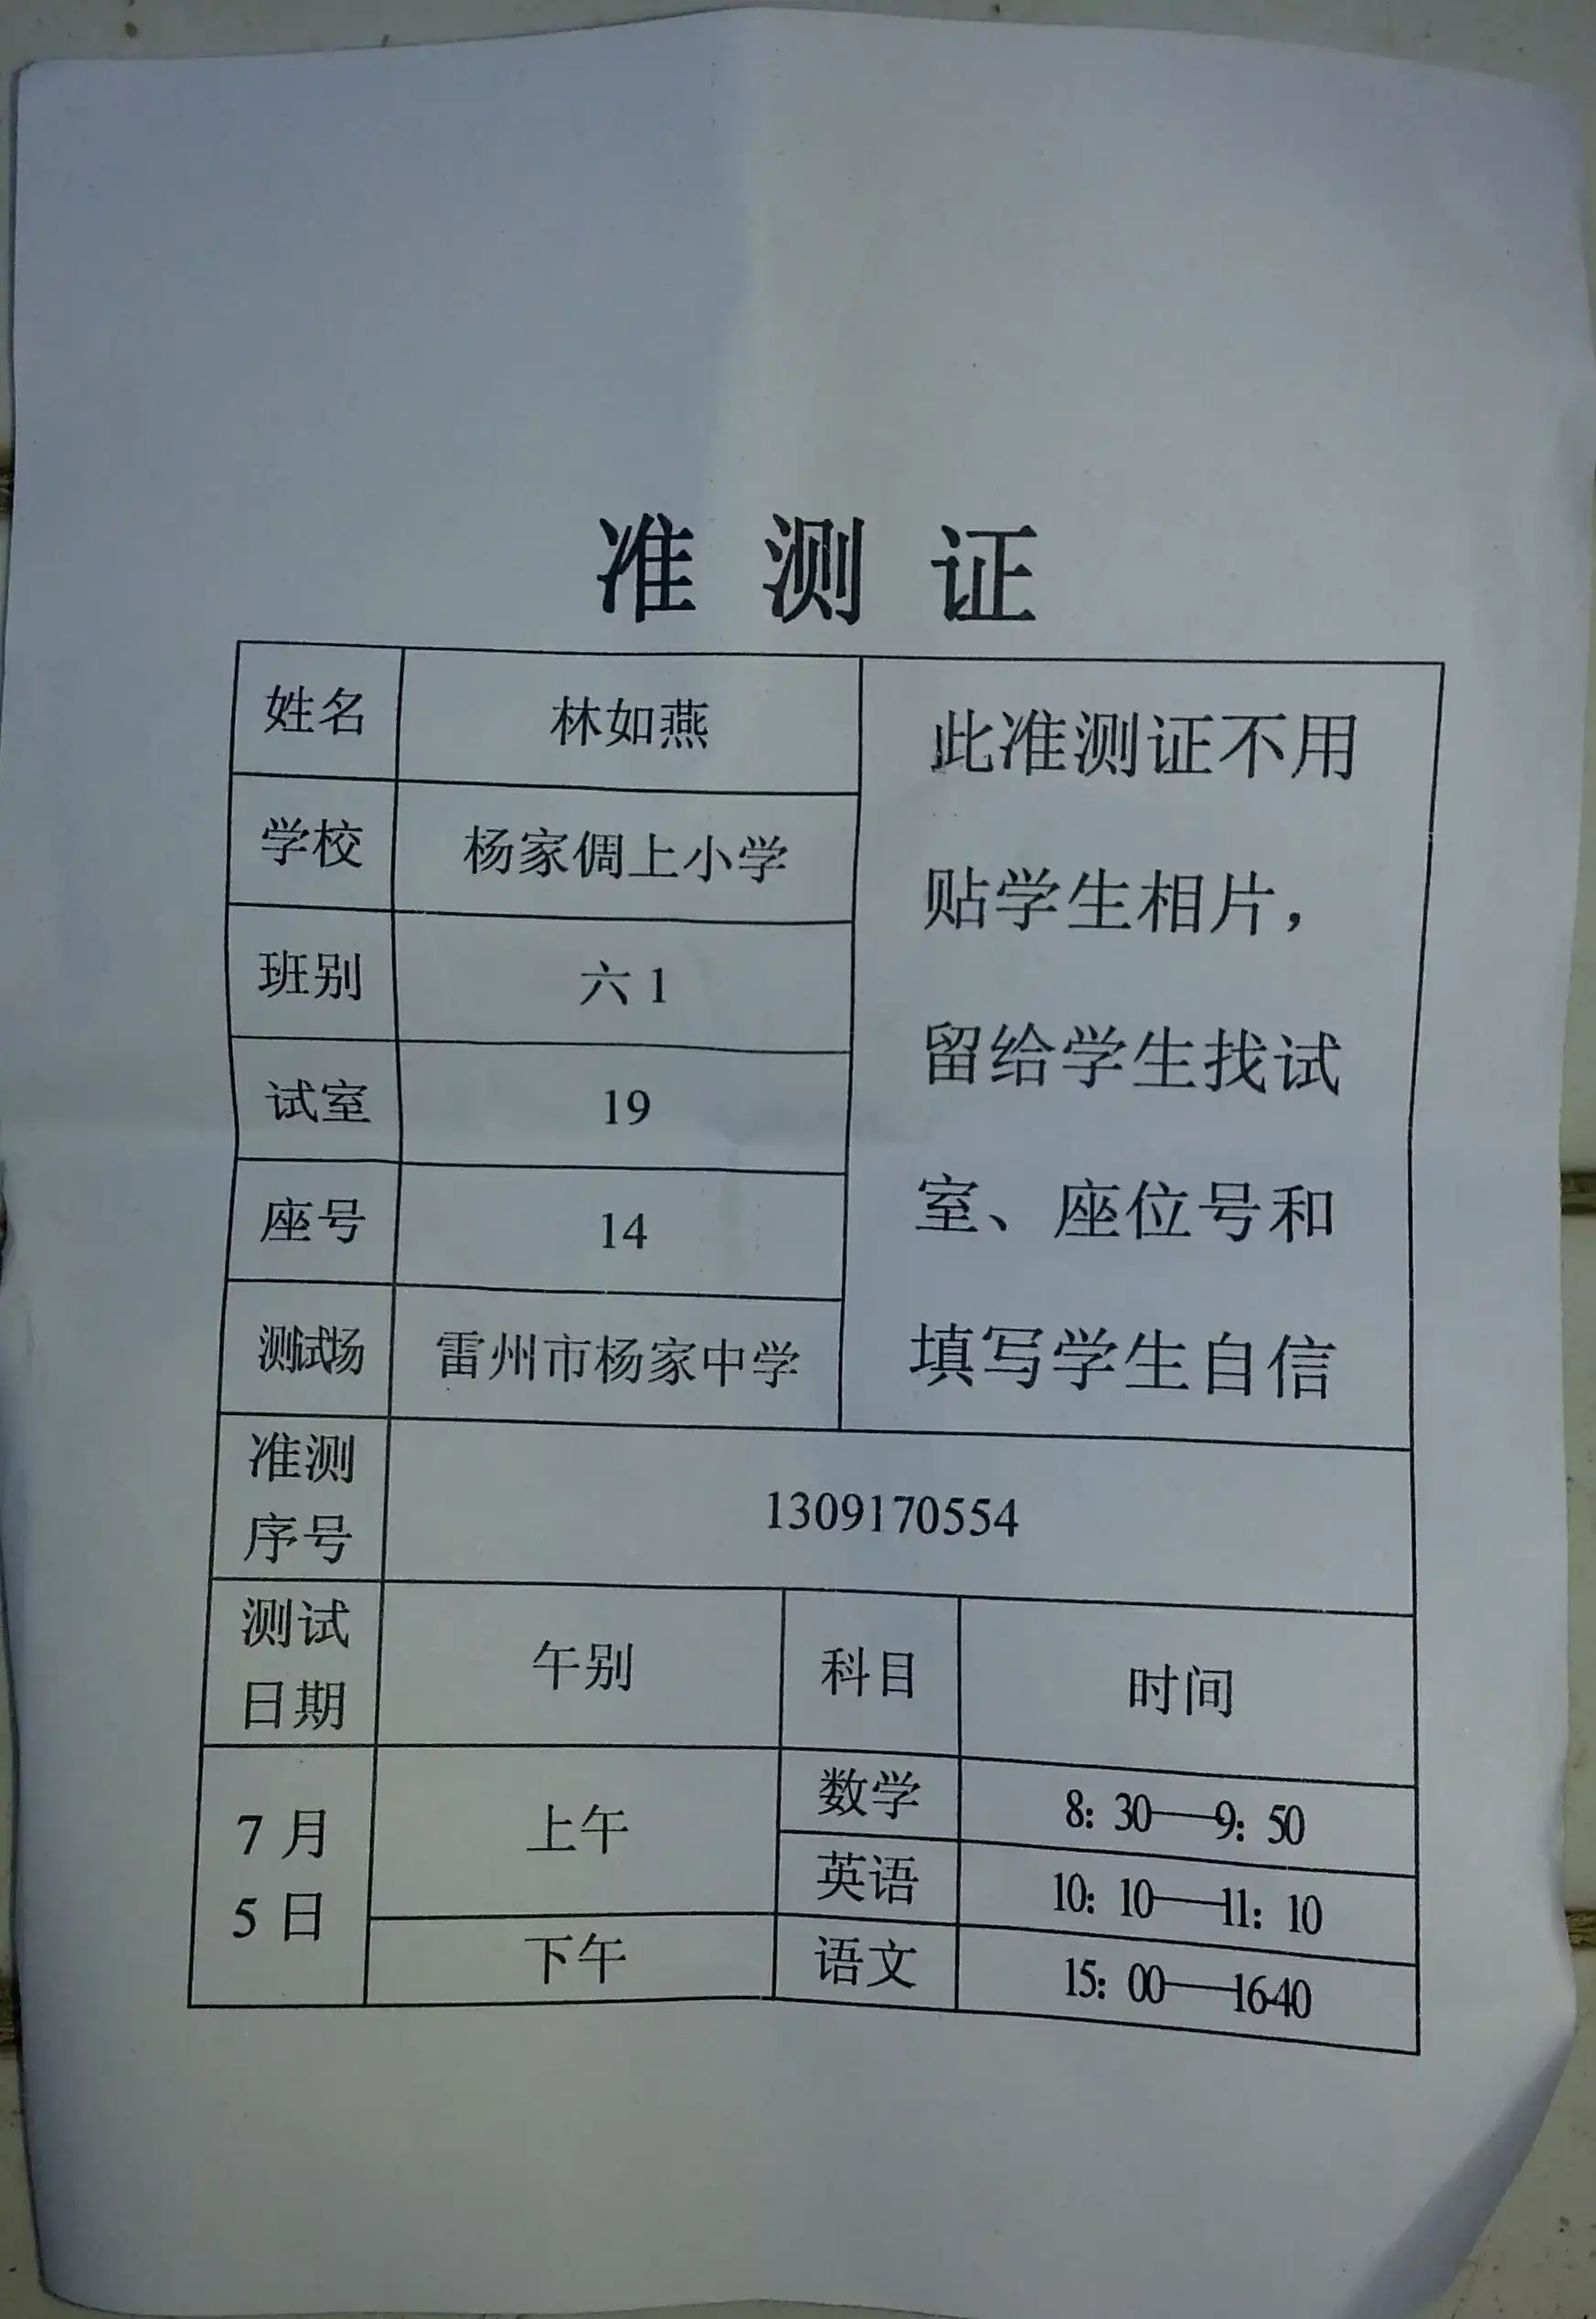 准测证
姓名 林如燕
学校 杨家倜上小学
班别 六1
试室 19
座号 14
测试场 雷州市杨家中学
此准测证不用
贴学生相片，
留给学生找试
室、座位号和
填写学生自信
准测
序号
1309170554
测试
日期
午别 科目 时间
7月
5日
上午
数学 8: 30——9: 50
英语 10: 10——11: 10
下午 语文 15: 00——1640